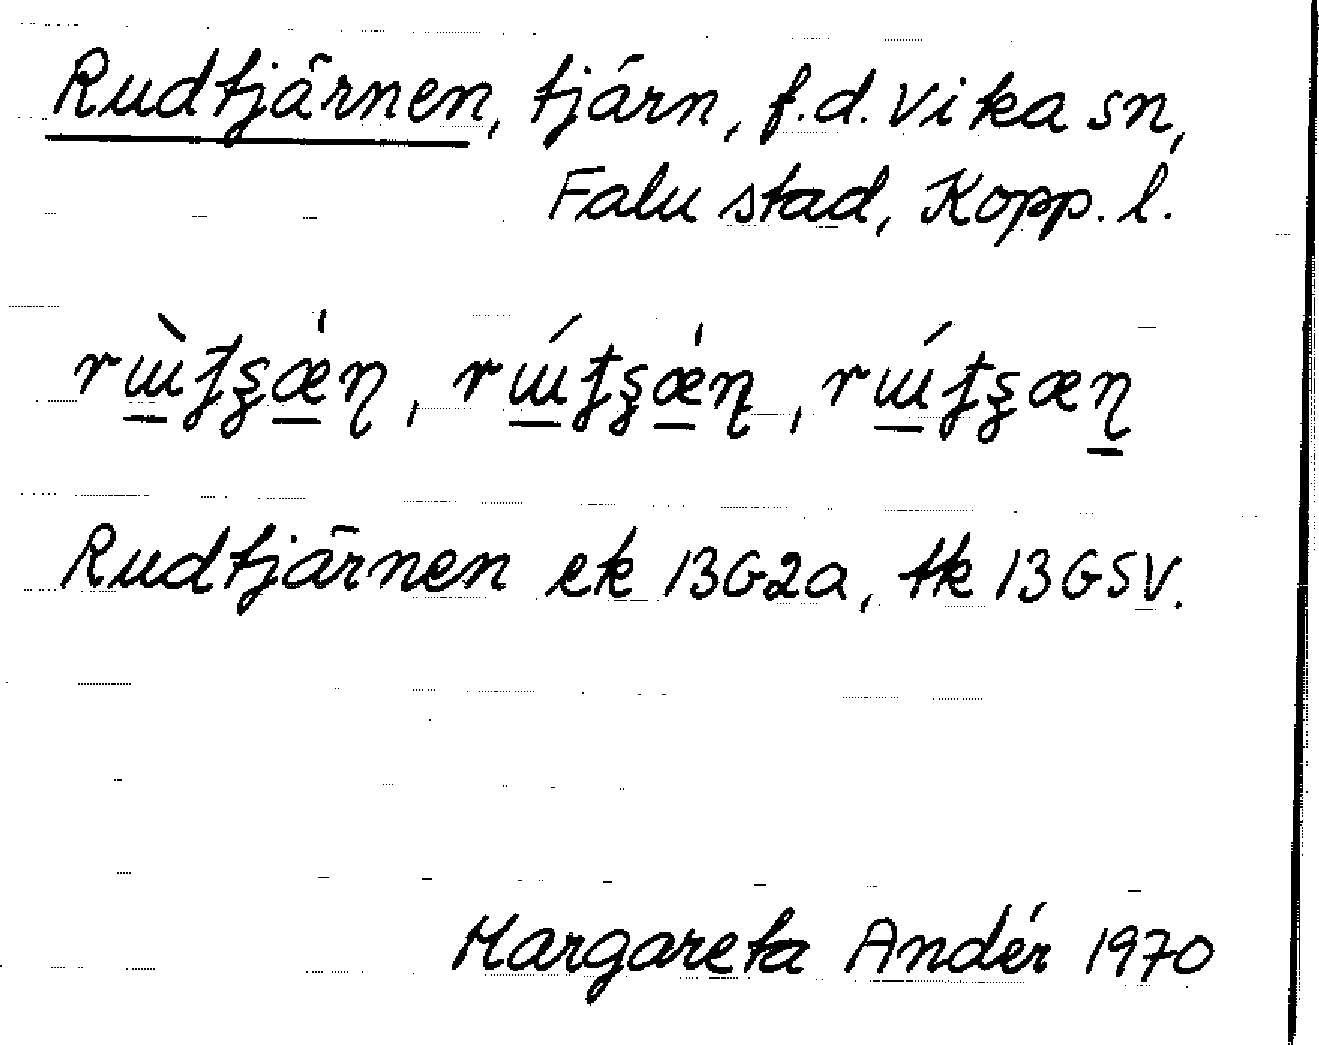 Rudtjärnen, tjärn, f.d. Vika sn,
Falu stad, Kopp. l.
Rudtjärnen ek 13G2a, tk 13GSV.
Margareta Andér 1970